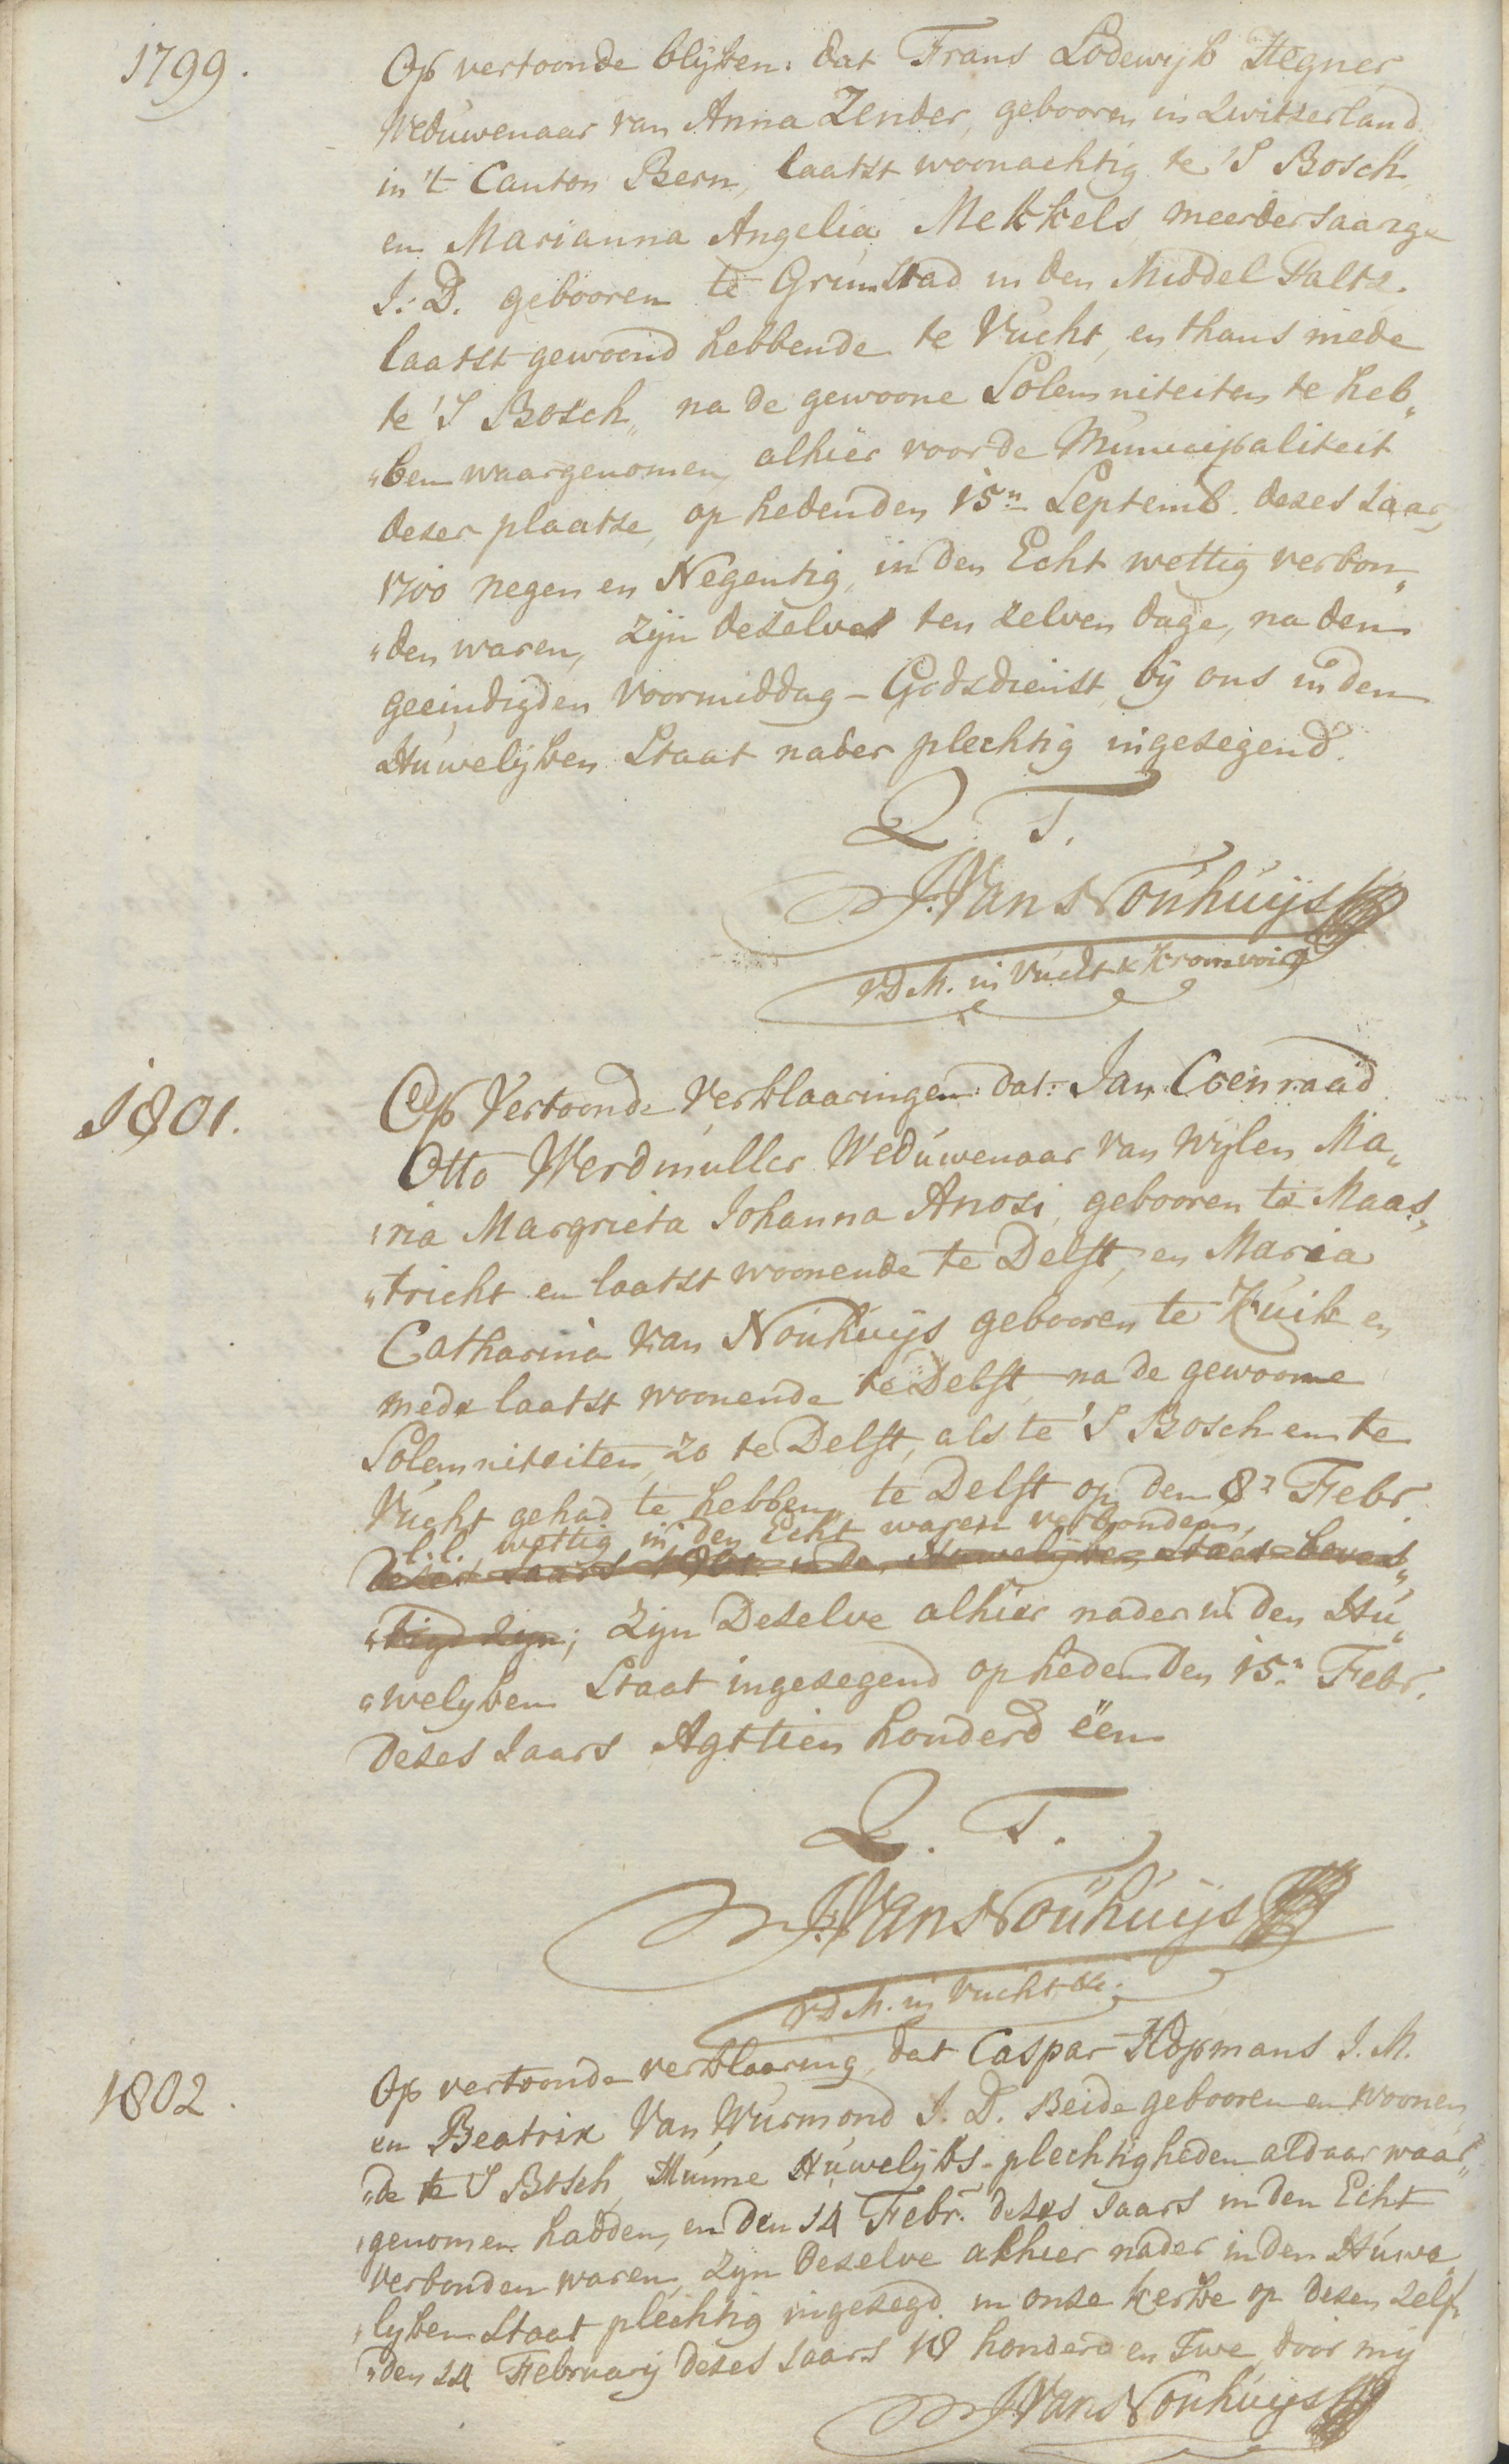 1799.
Op vertoonde blijken: dat Frans Lodewijk Hegner
Weduwenaar van Anna Zender, gebooren in Zwitserland
in 't Canton Bern, laatst woonachtig te 'S Bosch,
en Marianna Angelia Mekkels meerderjaarige
J: D. gebooren te Grunstad in den Middel Paltz.
laatst gewoond hebbende te Vucht, en thans mede
te 'S Bosch, na de gewoone Solemniteiten te heb„
„ben waargenomen, alhier voor de Municipaliteit
dezer plaatse, op heden den 15n Septemb. dezes Jaar,
1700 negen en Negentig, in den Echt wettig verbon„
„den waren, zijn dezelve ten zelven dage, na den
geeindigden Voormiddag-Godsdienst, bij ons in den
Huwelijken Staat nader plechtig ingezegend.
Q. T.
J. Van Nouhuijs
VDM. in Vucht & Kromvoirt
1801.
Op Vertoonde Verklaaringen: dat: Jan Coenraad
Otto Werdmuller Weduwenaar van wijlen Ma„
„ria Margrieta Johanna Anosi, gebooren te Maas„
„tricht en laatst woonende te Delft, en Maria
Catharina van Nouhuijs gebooren te Kuik en
mede laatst woonende te Delft, na de gewoone
Solemniteiten, zo te Delft, als te 'S Bosch en te
Vucht gehad te hebben, te Delft op den 8n Febr.
l.l. wettig in den Echt waren verbonden,
dezes Jaars 1801 in den Huwelijken Staat beves„
„tigd zijn; Zijn Dezelve alhier nader in den Hu„
„welyken Staat ingezegend op heden den 15n Febr.
dezes Jaars Agttien honderd één
Q. T.
J. Van Nouhuijs
VDM. in Vucht &c.
1802.
Op vertoonde verklaaring, dat Caspar Hopmans J. M.
en Beatrix Van Wurmond J. D. Beide gebooren en woonen„
„de te 'S Bosch, Hunne Huwelijks-plechtigheden aldaar waar„
„genomen hadden, en den 14 Febr. dezes Jaars in den Echt
verbonden waren, zijn Dezelve alhier nader in den Huwe„
„lyken Staat plechtig ingezegd in onze kerke op dezen zelf„
„den 14 Februarij dezes Jaars 18 honderd en Twe, door mij
J. Van Nouhuijs